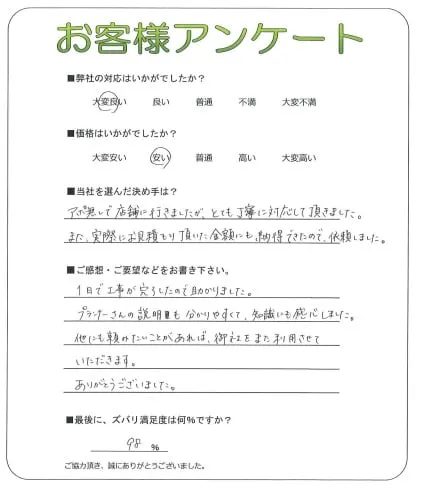 お客様アンケート
■弊社の対応はいかがでしたか？
大変良い 良い 普通 不満 大変不満
■価格はいかがでしたか？
大変安い 安い 普通 高い 大変高い
■当社を選んだ決め手は？
アポ無しで店舗に行きましたが、とても丁寧に対応して頂きました。
また、実際にお見積もり頂いた金額にも納得できたので、依頼しました。
■ご感想・ご要望などをお書き下さい。
1日で工事が完了したので助かりました。
プランナーさんの説明も分かりやすくて、知識にも感心しました。
他にも頼みたいことがあれば、御社をまた利用させて
いただきます。
ありがとうございました。
■最後に、ズバリ満足度は何％ですか？
98 ％
ご協力頂き、誠にありがとうございました。